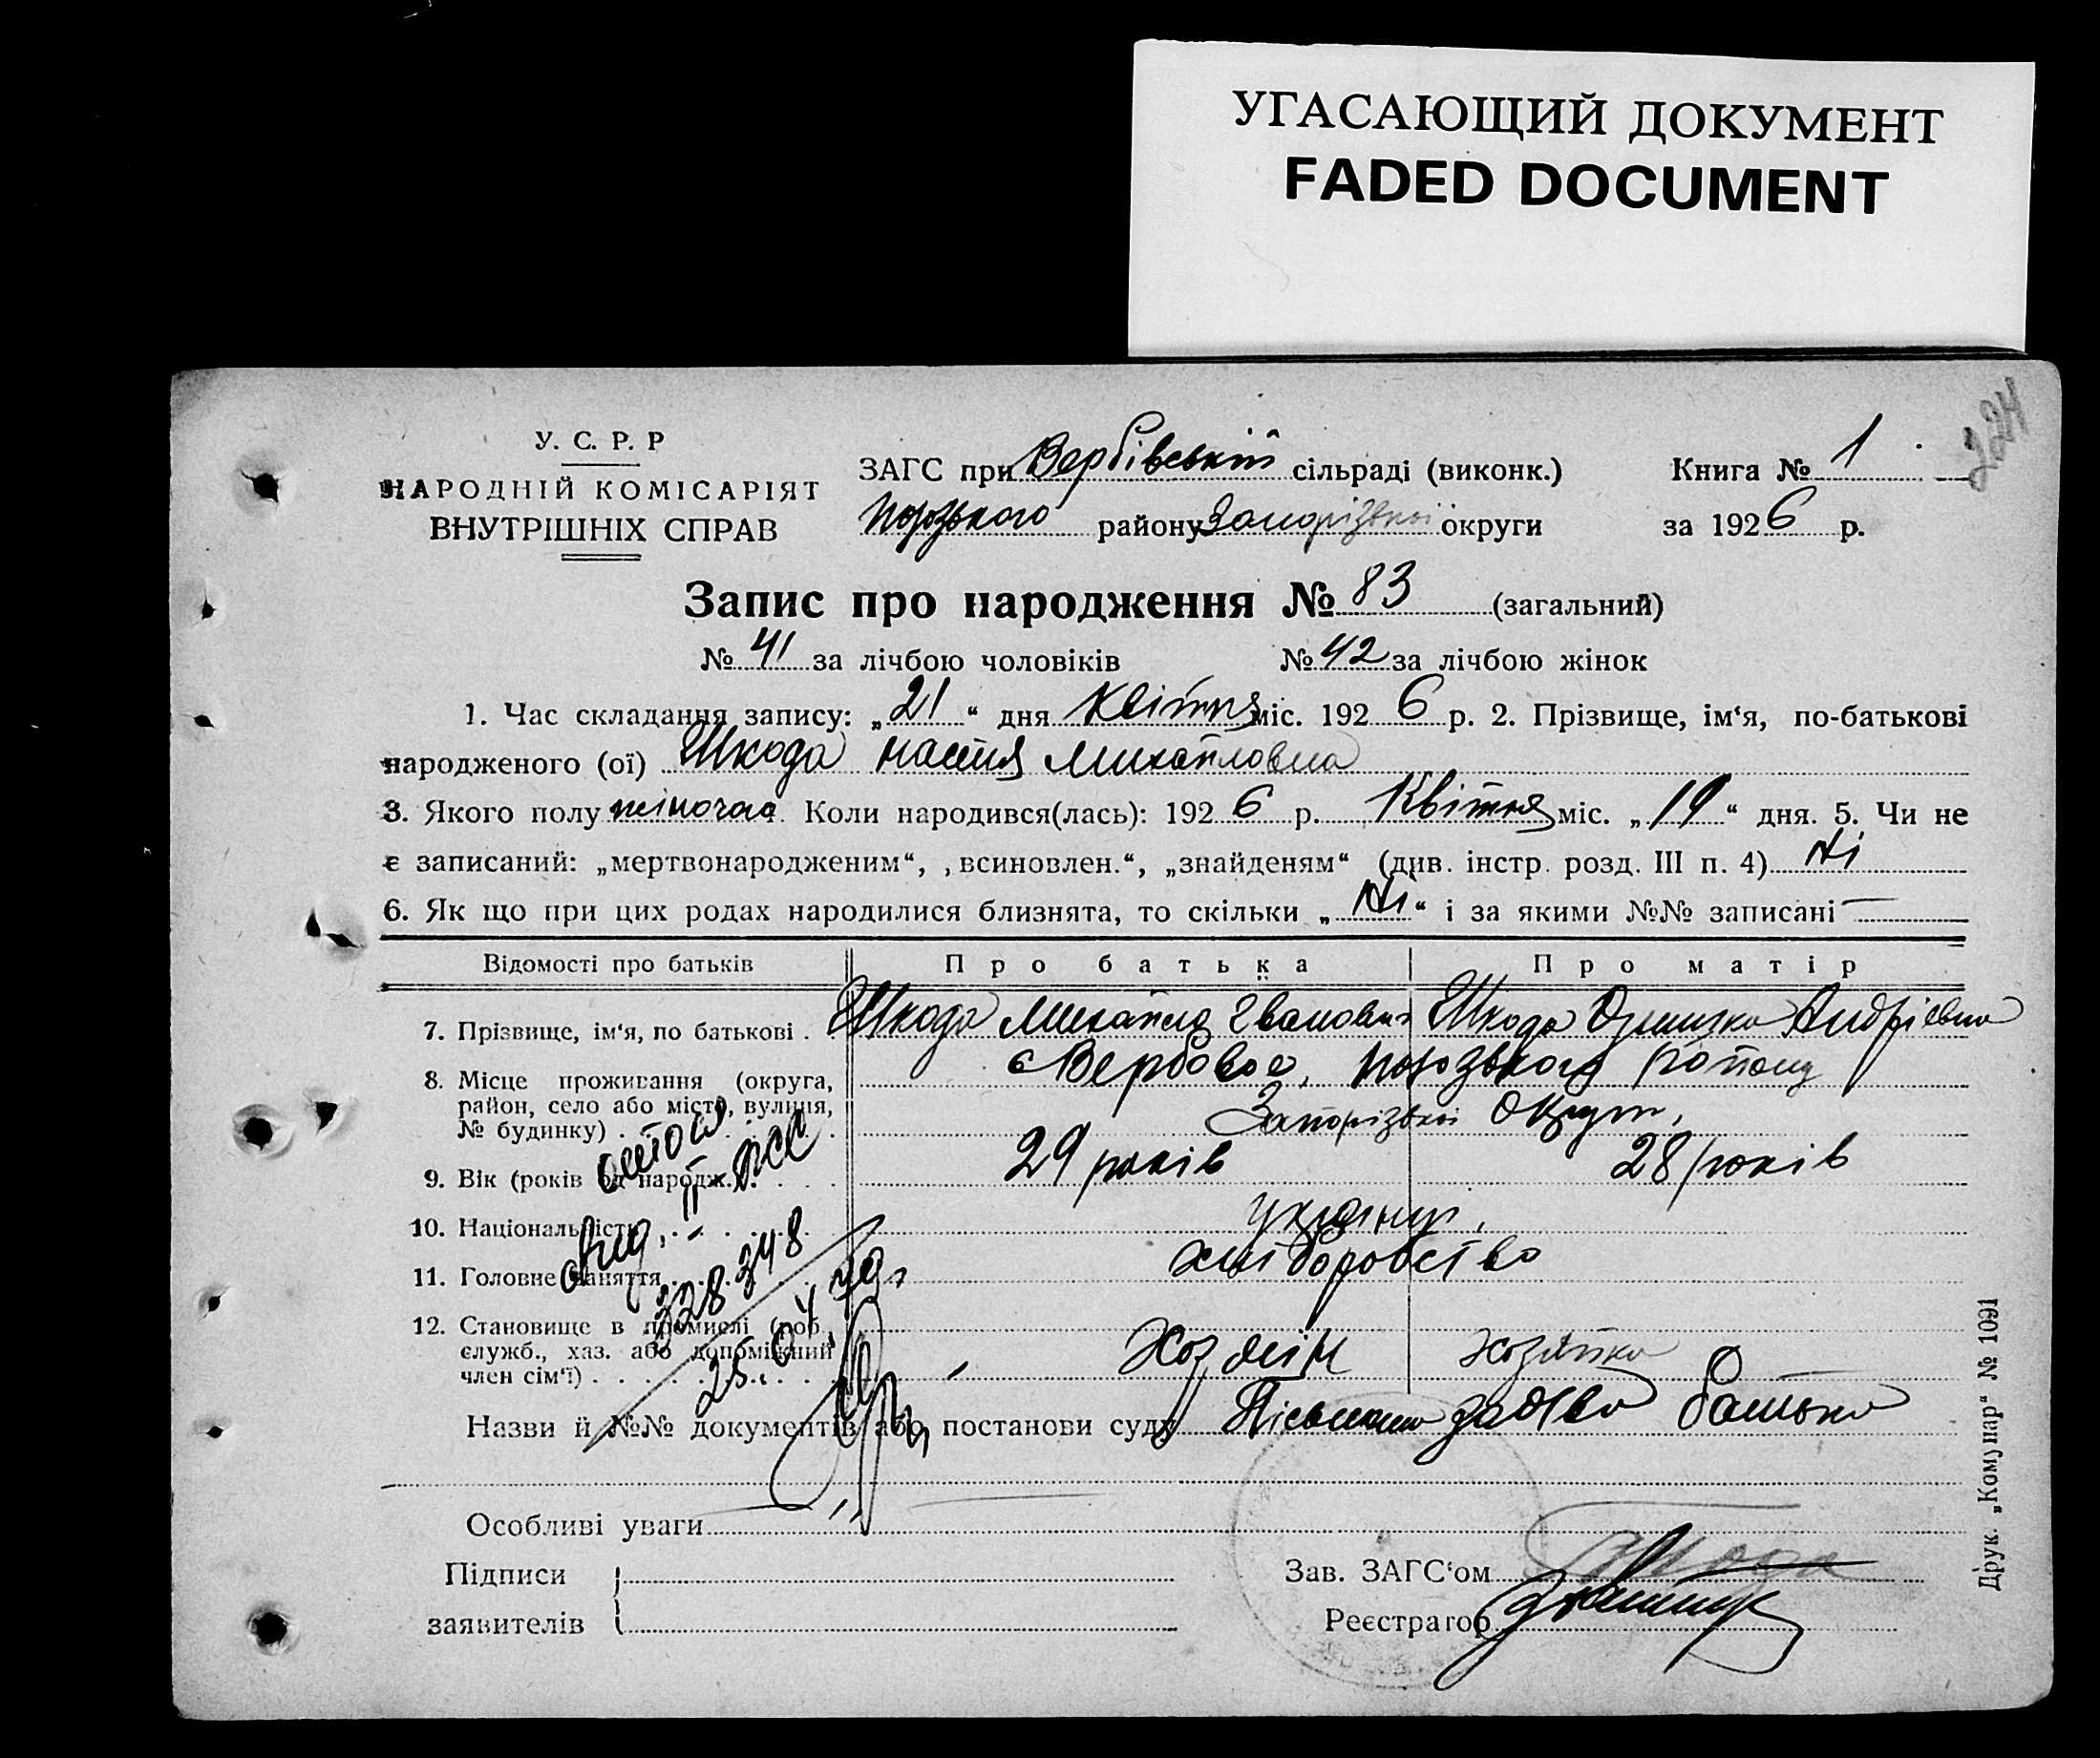 УГАСАЮЩИЙ ДОКУМЕНТ
FADED DOCUMENT
224
У. С. Р. Р
НАРОДНІЙ КОМІСАРІЯТ
ВНУТРІШНІХ СПРАВ
ЗАГС при Вербівській сільраді (виконк.)
району Запорізької округи
Книга № 1
за 1926 р.
Запис про народження № 83 (загальний)
№ 41 за лічбою чоловіків № 42 за лічбою жінок
1. Час складання запису: „21“ дня Квітня міс. 1926 р. 2. Прізвище, ім‘я, по-батькові
народженого (ої) Шкода Настя Михайловна
3. Якого полу жіночає. Коли народився(лась): 1926 р. Квітня міс. „19“ дня. 5. Чи не
є записаний: „мертвонародженим“, „всиновлен.“, „знайденям“ (див. інстр. розд. III п. 4) Ні
6. Як що при цих родах народилися близнята, то скільки „Ні“ і за якими №№ записані —
Відомості про батьків Про батька Про матір
7. Прізвище, ім‘я, по батькові . . Шкода Михайло Іванович Шкода Андрієвна
8. Місце проживання (округа,
район, село або місто, вулиця,
№ будинку) . . . с Вербовое, району
Запорізької Округи,
9. Вік (років від народж.) . . . 29 років 28 років
10. Національність . . . українці,
11. Головне заняття . . . хліборобство
12. Становище в промислі (роб.,
служб., хаз. або допоміжний
член сім‘ї) . . . Хозяїн хозяйка
328348
25.04
Назви й №№ документів або постанови суду Пісьмана заява батька
Особливі уваги
Підписи
заявителів
Зав. ЗАГС‘ом Шкода
Реєстратор
Друк. „Комунар“ № 1091